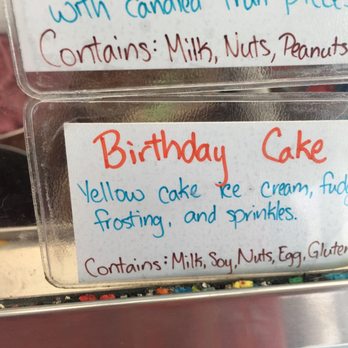 with candied fruit pieces
Contains: Milk, Nuts, Peanuts
Birthday Cake
Yellow cake ice cream, fudg
frosting, and sprinkles.
Contains: Milk, Soy, Nuts, Egg, Gluten